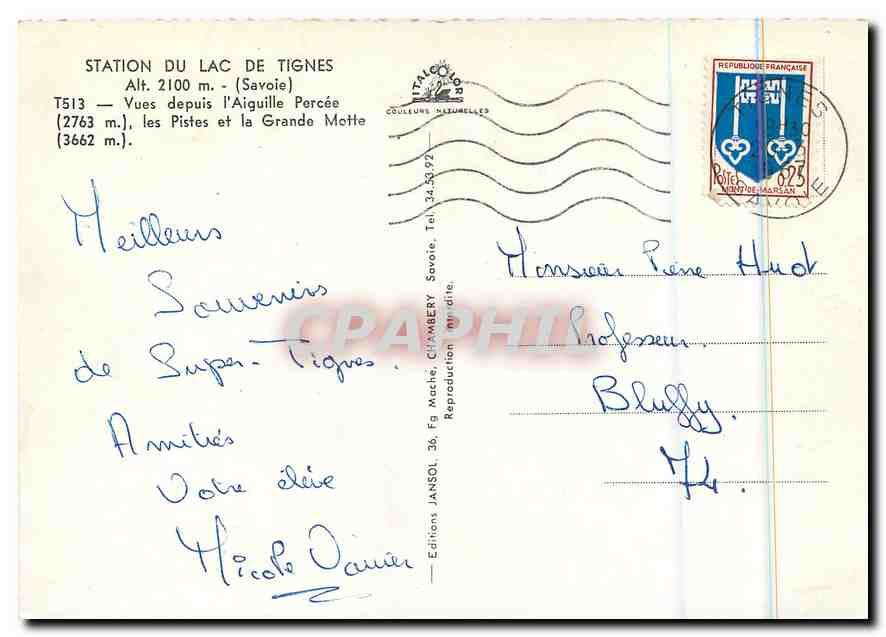 STATION DU LAC DE TIGNES
Alt. 2100 m. - (Savoie)
T513 — Vues depuis l'Aiguille Percée
(2763 m.), les Pistes et la Grande Motte
(3662 m.).
ITALCOLOR
COULEURS NATURELLES
REPUBLIQUE FRANÇAISE
POSTES 0,25
MONT-DE-MARSAN
Meilleurs
Souvenirs
de Super-Tignes.
Amitiés
Votre élève
Nicole
— Editions JANSOL, 36, Fg Mache, CHAMBERY Savoie, Tel. 34.53.92 —
Reproduction interdite.
Monsieur Pierre Hudt
Professeur.
Bluffy.
74.
CPAPHIL